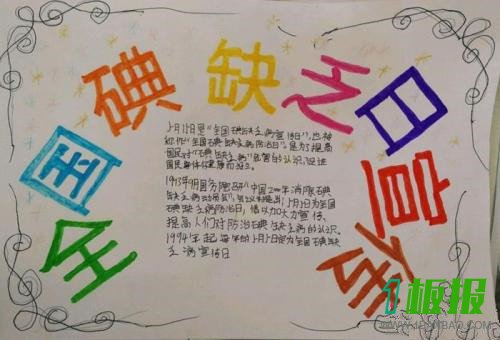 全国碘缺乏日宣传
5月15日是"全国碘缺乏病宣传日",也被
称作"全国碘缺乏病防治日"。是为提高
国民对"碘缺乏病"危害的认识,促进
国民身体健康而设立。
1993年9月国务院召开"中国2000年消除碘
缺乏病动员会",
5月5日为全国
碘缺乏病防治日,借以加大力宣传,
提高人们对防治碘缺乏病的认识。
1994年起每年的5月5日定为全国碘缺
乏病宣传日
1板报
WWW.1BANBAO.COM